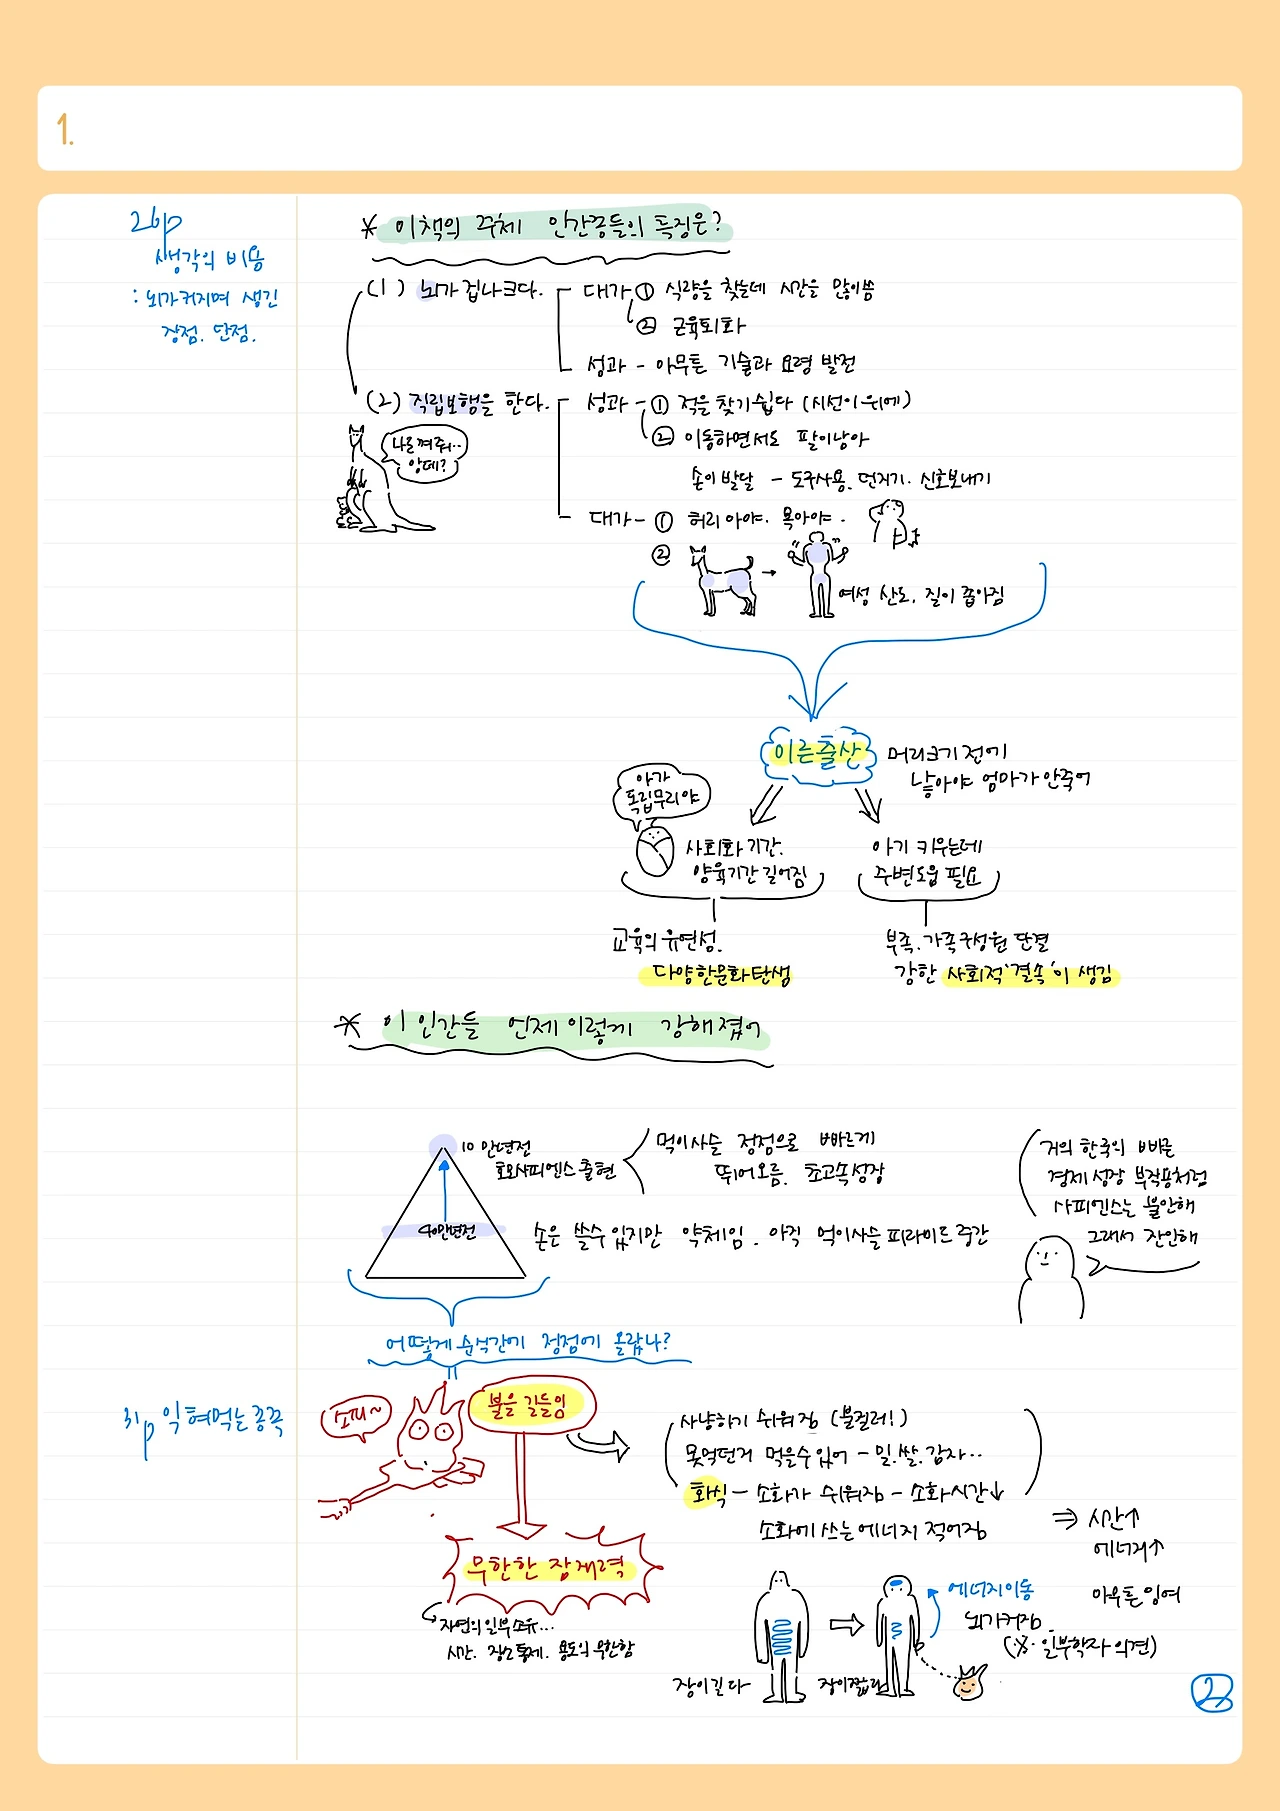 1.
26p
생각의 비용
: 뇌가 커지며 생긴
장점. 단점.
* 이책의 주체 인간종들의 특징은?
(1) 뇌가 겁나크다.
대가 ① 식량을 찾는데 시간을 많이씀
② 근육퇴화
성과 - 아무튼 기술과 요령 발전
(2) 직립보행을 한다.
성과 - ① 적을 찾기쉽다 (시선이 위에)
② 이동하면서도 팔이남아
손이 발달 - 도구사용. 던지기. 신호보내기
나도 껴줘..
안돼?
대가 - ① 허리 아야. 목아야.
②
여성 산도, 질이 좁아짐
이른출산
머리크기 전에
낳아야 엄마가 안죽어
아가
독립무리야
사회화 기간.
양육기간 길어짐
아기 키우는데
주변도움 필요
교육의 유연성.
다양한문화탄생
부족. 가족구성원 단결
강한 사회적 '결속'이 생김
* 이 인간들 언제 이렇게 강해졌어
10만년전
호모사피엔스 출현
먹이사슬 정점으로 빠르게
뛰어오름. 초고속성장
거의 한국의 빠른
경제성장 부작용처럼
사피엔스는 불안해
그래서 잔인해
40만년전
손은 쓸수 있지만 약체임. 아직 먹이사슬 피라미드 중간
어떻게 순식간에 정점에 올랐나?
31p 익혀먹는 종족
소피~
불을 길들임
사냥하기 쉬워짐 (불질러!)
못먹던거 먹을수있어 - 밀.쌀.감자..
화식 - 소화가 쉬워짐 - 소화시간↓
소화에 쓰는에너지 적어짐
⇒ 시간↑
에너지↑
아무튼 잉여
무한한 잠재력
자연의 일부 소유...
시간. 장소 통제. 용도의 무한함
장이길다
장이짧다
에너지이동
뇌가커짐
(※ 일부학자 의견)
2